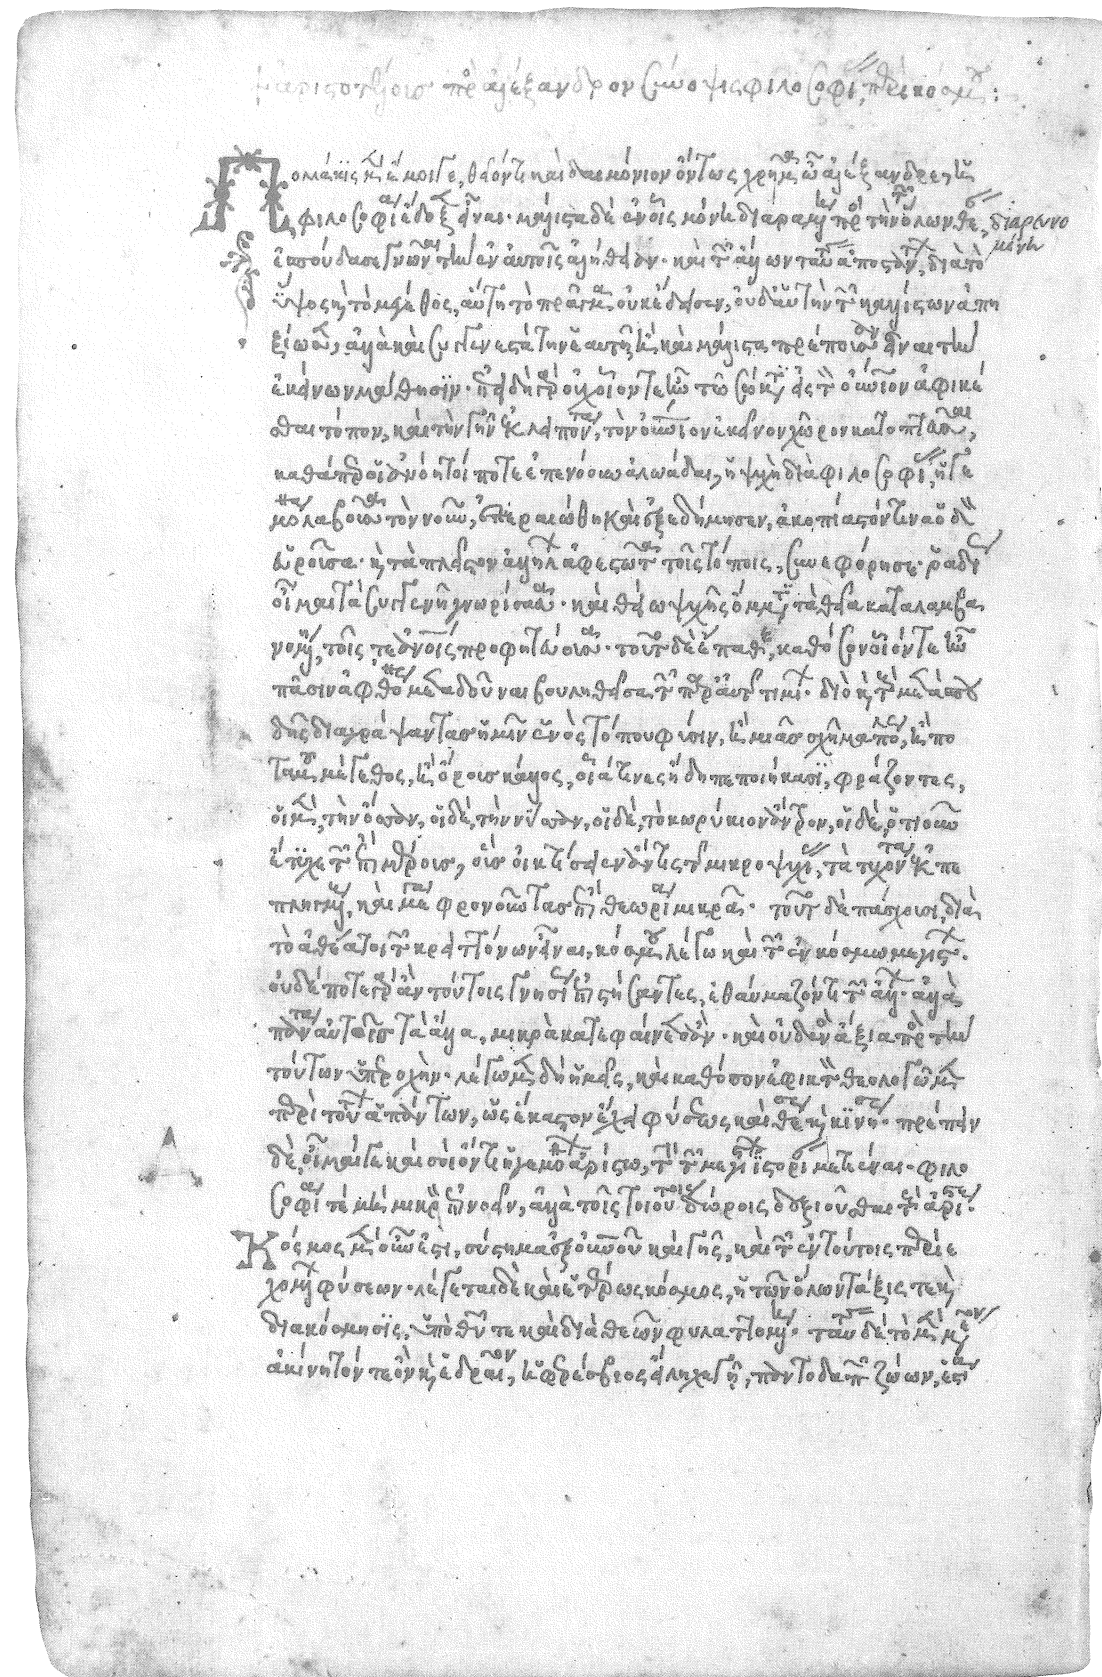 ἀριστοτέλους πρὸς ἀλέξανδρον σύνοψις φιλοσοφίας περὶ κόσμου:
Πολλάκις μὲν ἔμοιγε, θεῖόν τι καὶ δαιμόνιον ὄντως χρῆμα ὦ ἀλέξανδρε, ἡ
φιλοσοφία ἔδοξεν εἶναι· μάλιστα δὲ ἐν οἷς μόνη διαραμένη πρὸς τὴν τῶν ὅλων θέαν,
διαρουμένη
ἐσπούδασε γνῶναι τὴν ἐν αὐτοῖς ἀλήθειαν· καὶ τῶν ἄλλων ταύτης ἀποστάντων, διὰ τὸ
ὕψος καὶ τὸ μέγεθος, αὕτη τὸ πρᾶγμα οὐκ ἔδεισεν, οὐδ' αὑτὴν τῶν καλλίστων ἀπη
ξίωσεν, ἀλλὰ καὶ συγγενεστάτην ἑαυτῇ καὶ μάλιστα πρέπουσαν εἶναι τὴν
ἐκείνων μάθησιν· ἐπειδὴ γὰρ οὐχ οἷόν τε ἦν τῷ σώματι εἰς τὸν οὐράνιον ἀφικέ
σθαι τόπον, καὶ τὴν γῆν ἐκλιπόντα, τὸν οὐράνιον ἐκεῖνον χῶρον κατοπτεῦσαι,
καθάπερ οἱ ἀνόητοί ποτε ἐπενόουν ἀλωάδαι, ἡ ψυχὴ διὰ φιλοσοφίας, ἡγε
μόνα λαβοῦσα τὸν νοῦν, ἐπεραιώθη καὶ ἐξεδήμησεν, ἀκοπίαστόν τινα ὁδὸν
εὑροῦσα· καὶ τὰ πλεῖστον ἀλλήλων ἀφεστῶτα τοῖς τόποις, συνεφόρησε· ῥᾳδίως
οἶμαι τὰ συγγενῆ γνωρίσασα· καὶ θείῳ ψυχῆς ὄμματι τὰ θεῖα καταλαμβα
νομένη, τοῖς τε ἀνθρώποις προφητεύουσα· τοῦτο δὲ ἔπαθε, καθόσον οἷόν τε ἦν
πᾶσιν ἀφθόνως μεταδοῦναι βουληθεῖσα τῶν παρ' αὑτῇ τιμίων· διὸ καὶ τοὺς μετὰ σπου
δῆς διαγράψαντας ἡμῖν ἑνὸς τόπου φύσιν, ἢ μιᾶς σχῆμα πόλεως, ἢ πο
ταμοῦ μέγεθος, ἢ ὄρους κάλλος, οἷά τινες ἤδη πεποιήκασι, φράζοντες,
οἱ μὲν, τὴν ὄσσαν, οἱ δὲ, τὴν νύσσαν, οἱ δὲ, τὸ κωρύκιον ἄντρον, οἱ δὲ, ὁτιοῦν
ἔτυχε τῶν ἐπὶ μέρους, οἰκτίσειεν ἄν τις τῆς μικροψυχίας, τὰ τυχόντα ἐκπε
πληγμένους, καὶ μέγα φρονοῦντας ἐπὶ θεωρίᾳ μικρᾷ· τοῦτο δὲ πάσχουσι, διὰ
τὸ ἀθέατοι τῶν κρειττόνων εἶναι, κόσμου λέγω καὶ τῶν ἐν κόσμω μεγίστων·
οὐδέποτε γὰρ ἂν τούτοις γνησίως ἐπιστήσαντες, ἐθαύμαζόν τι τῶν ἄλλων· ἀλλὰ
πάντα αὐτοῖς τὰ ἄλλα, μικρὰ κατεφαίνετο ἂν· καὶ οὐδενὸς ἄξια πρὸς τὴν
τούτων ὑπεροχὴν· λέγωμεν δὴ ἡμεῖς, καὶ καθόσον ἐφικτὸν θεολογῶμεν
περὶ τούτων ἁπάντων, ὡς ἕκαστον ἔχει φύσεως καὶ θέσεως καὶ κινήσεως· πρέπειν
δὲ, οἶμαί γε καὶ σοὶ ὄντι ἡγεμόνων ἀρίστῳ, τὴν τῶν μεγίστων ἱστορίαν μετιέναι· φιλο
σοφίᾳ τε μὴ μικρὸν ἐπινοεῖν, ἀλλὰ τοῖς τοιούτοις δώροις δεξιοῦσθαι τοὺς ἀρίστους·
Κόσμος μὲν οὖν ἐστι, σύστημα ἐξ οὐρανοῦ καὶ γῆς, καὶ τῶν ἐν τούτοις περιε
χομένων φύσεων· λέγεται δὲ καὶ ἑτέρως κόσμος, ἡ τῶν ὅλων τάξις τε καὶ
διακόσμησις, ὑπὸ θεοῦ τε καὶ διὰ θεῶν φυλαττομένη· ταύτης δὲ τὸ μὲν μέσον
ἀκίνητόν τε ὂν καὶ ἑδραῖον, ἡ φερέσβιος εἴληχε γῆ, παντοδαπῶν ζώων, ἑστία